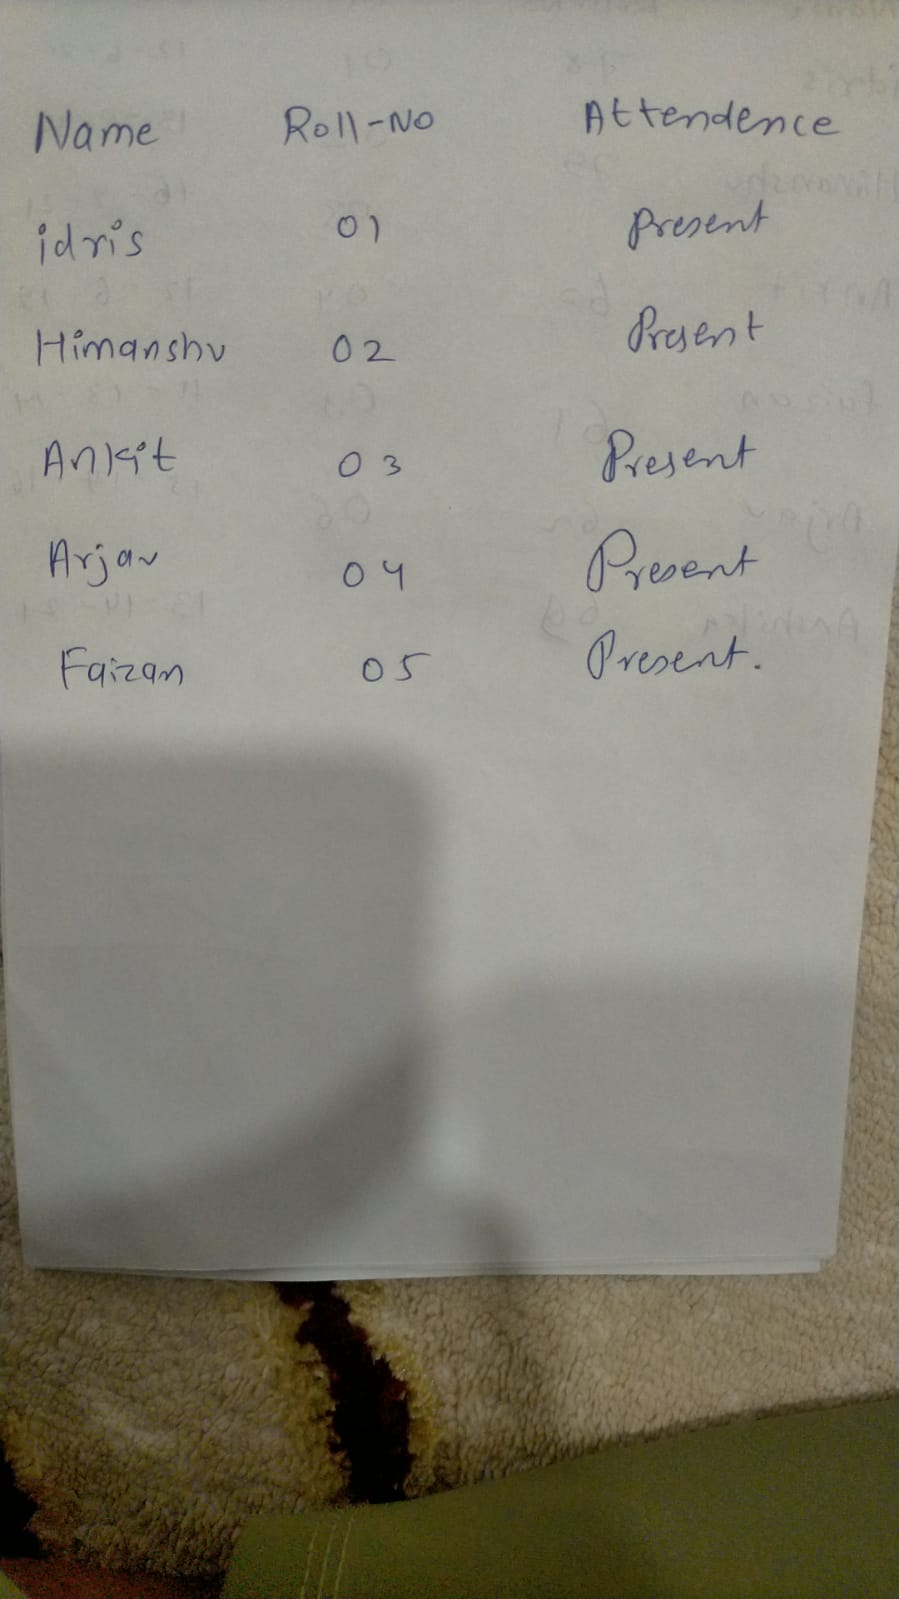 Name Roll-No Attendence
idris 01 Present
Himanshu 02 Present
Ankit 03 Present
Arjav 04 Present
Faizan 05 Present.